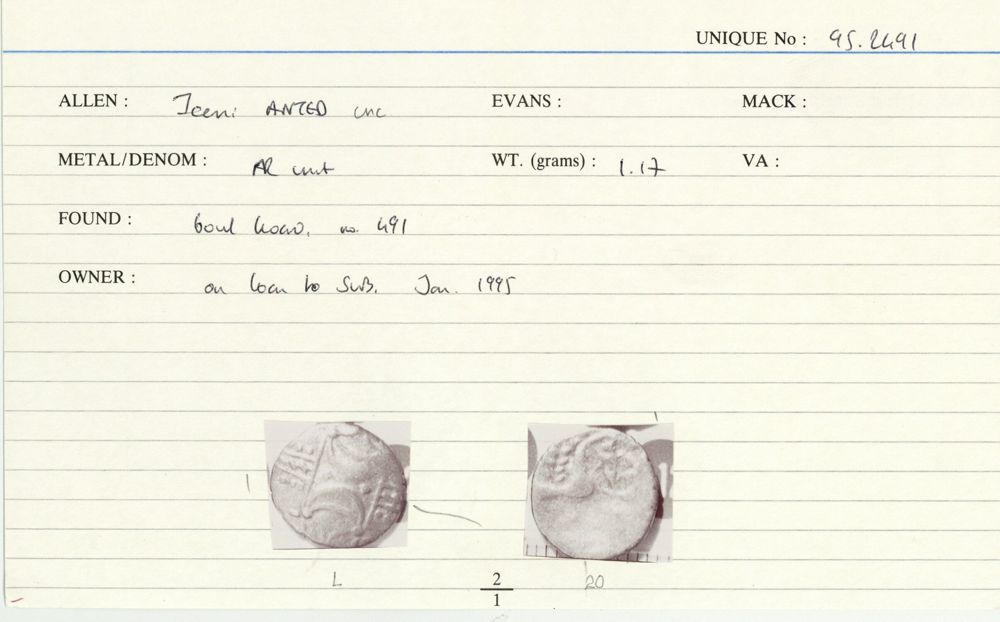 UNIQUE No : 95.2491
ALLEN : Iceni ANTED unc EVANS : MACK :
METAL/DENOM : AR unit WT. (grams) : 1.17 VA :
FOUND : bowl hoard, no. 491
OWNER : on loan to SUB. Jan. 1995
L 2 20
1